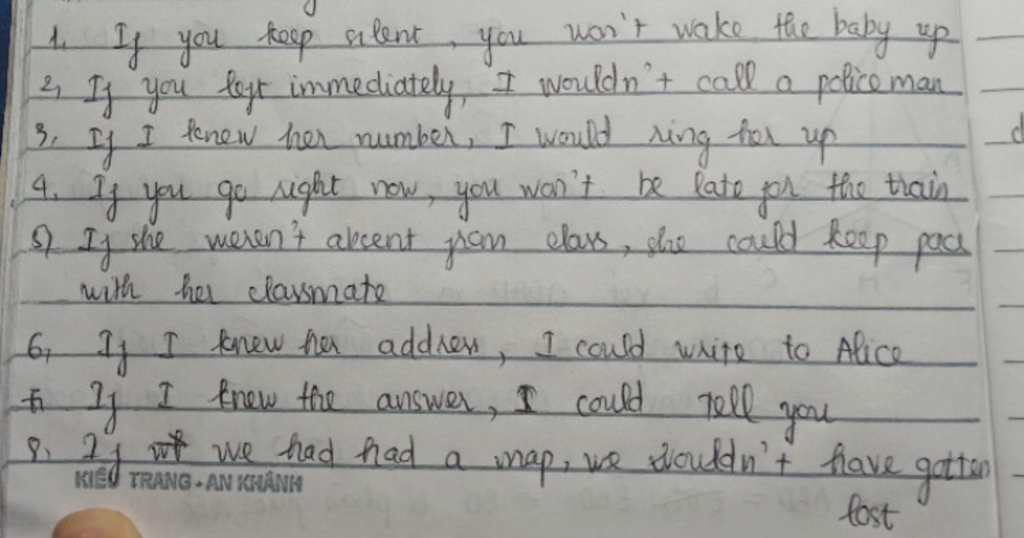 1, If you keep silent, you won't wake the baby up
2, If you left immediately, I wouldn't call a policeman
3, If I knew her number, I would ring her up
4. If you go right now, you won't be late for the train
5) If she weren't absent from class, she could keep pace
with her classmate
6, If I knew her address, I could write to Alice
7, If I knew the answer, I could tell you
8, If we had had a map, we wouldn't have gotten
lost
KIỀU TRANG - AN KHÁNH